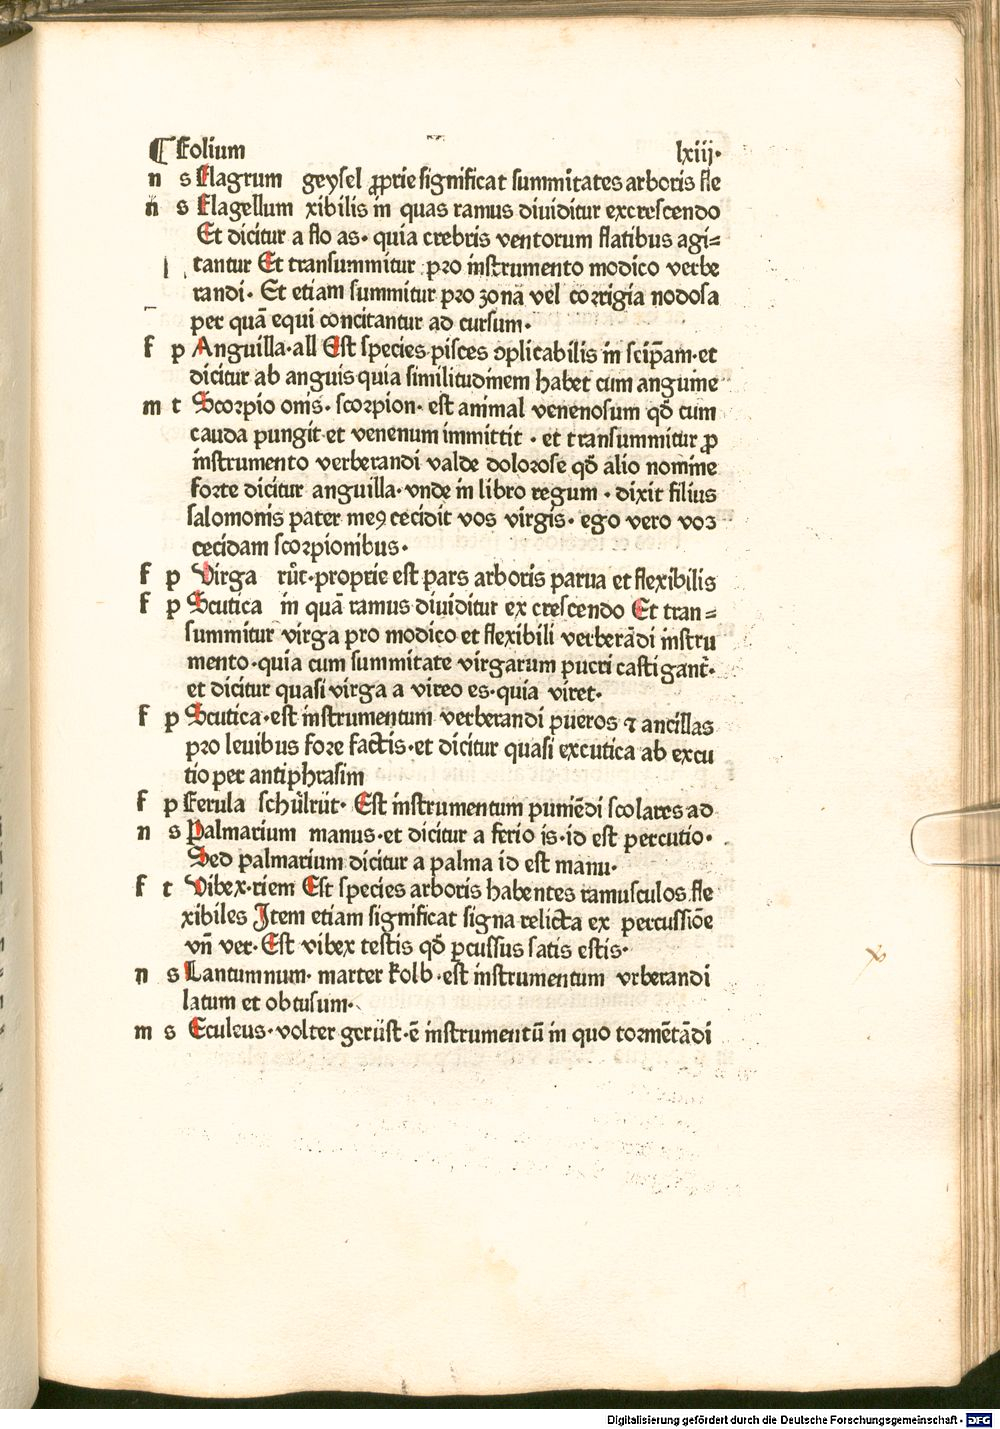 ¶ Folium lxiij.
n s Flagrum geysel ꝓprie significat summitates arboris fle
n s Flagellum xibilis in quas ramus diuiditur excrescendo
Et dicitur a flo as. quia crebris ventorum flatibus agi⸗
tantur Et transummitur pro instrumento modico verbe
randi. Et etiam summitur pro zonā vel corrigia nodosa
per quā equi concitantur ad cursum.
f p Anguilla. all Est species pisces ↄplicabilis in seip̄am. et
dicitur ab anguis quia similitudinem habet cum anguine
m t Scorpio onis. scorpion. est animal venenosum qđ cum
cauda pungit et venenum immittit . et transummitur ꝓ
instrumento verberandi valde dolorose qđ alio nomine
forte dicitur anguilla. vnde in libro regum . dixit filius
salomonis pater meꝰ cecidit vos virgis. ego vero voz
cecidam scorpionibus.
f p Virga růt. proprie est pars arboris parua et flexibilis
f p Scutica in quā ramus diuiditur ex crescendo Et tran⸗
summitur virga pro modico et flexibili verberādi instru
mento. quia cum summitate virgarum pueri castigant᷑.
et dicitur quasi virga a vireo es. quia viret.
f p Scutica. est instrumentum verberandi pueros ⁊ ancillas
pro leuibus fore factis. et dicitur quasi excutica ab excu
tio per antiphrasim
f p Ferula schůlrůt. Est instrumentum puniēdi scolares ad
n s Palmarium manus. et dicitur a ferio is. id est percutio.
Sed palmarium dicitur a palma id est manu.
f t Vibex. riem Est species arboris habentes ramusculos fle
xibiles Item etiam significat signa relicta ex percussiōe
vn̄ ver. Est vibex testis qđ ꝑcussus satis estis.
n s Lantumnum. marter kolb. est instrumentum vrberandi
latum et obtusum.
m s Eculeus. volter gerüst. ē instrumentū in quo tormētādi
Digitalisierung gefördert durch die Deutsche Forschungsgemeinschaft - DFG